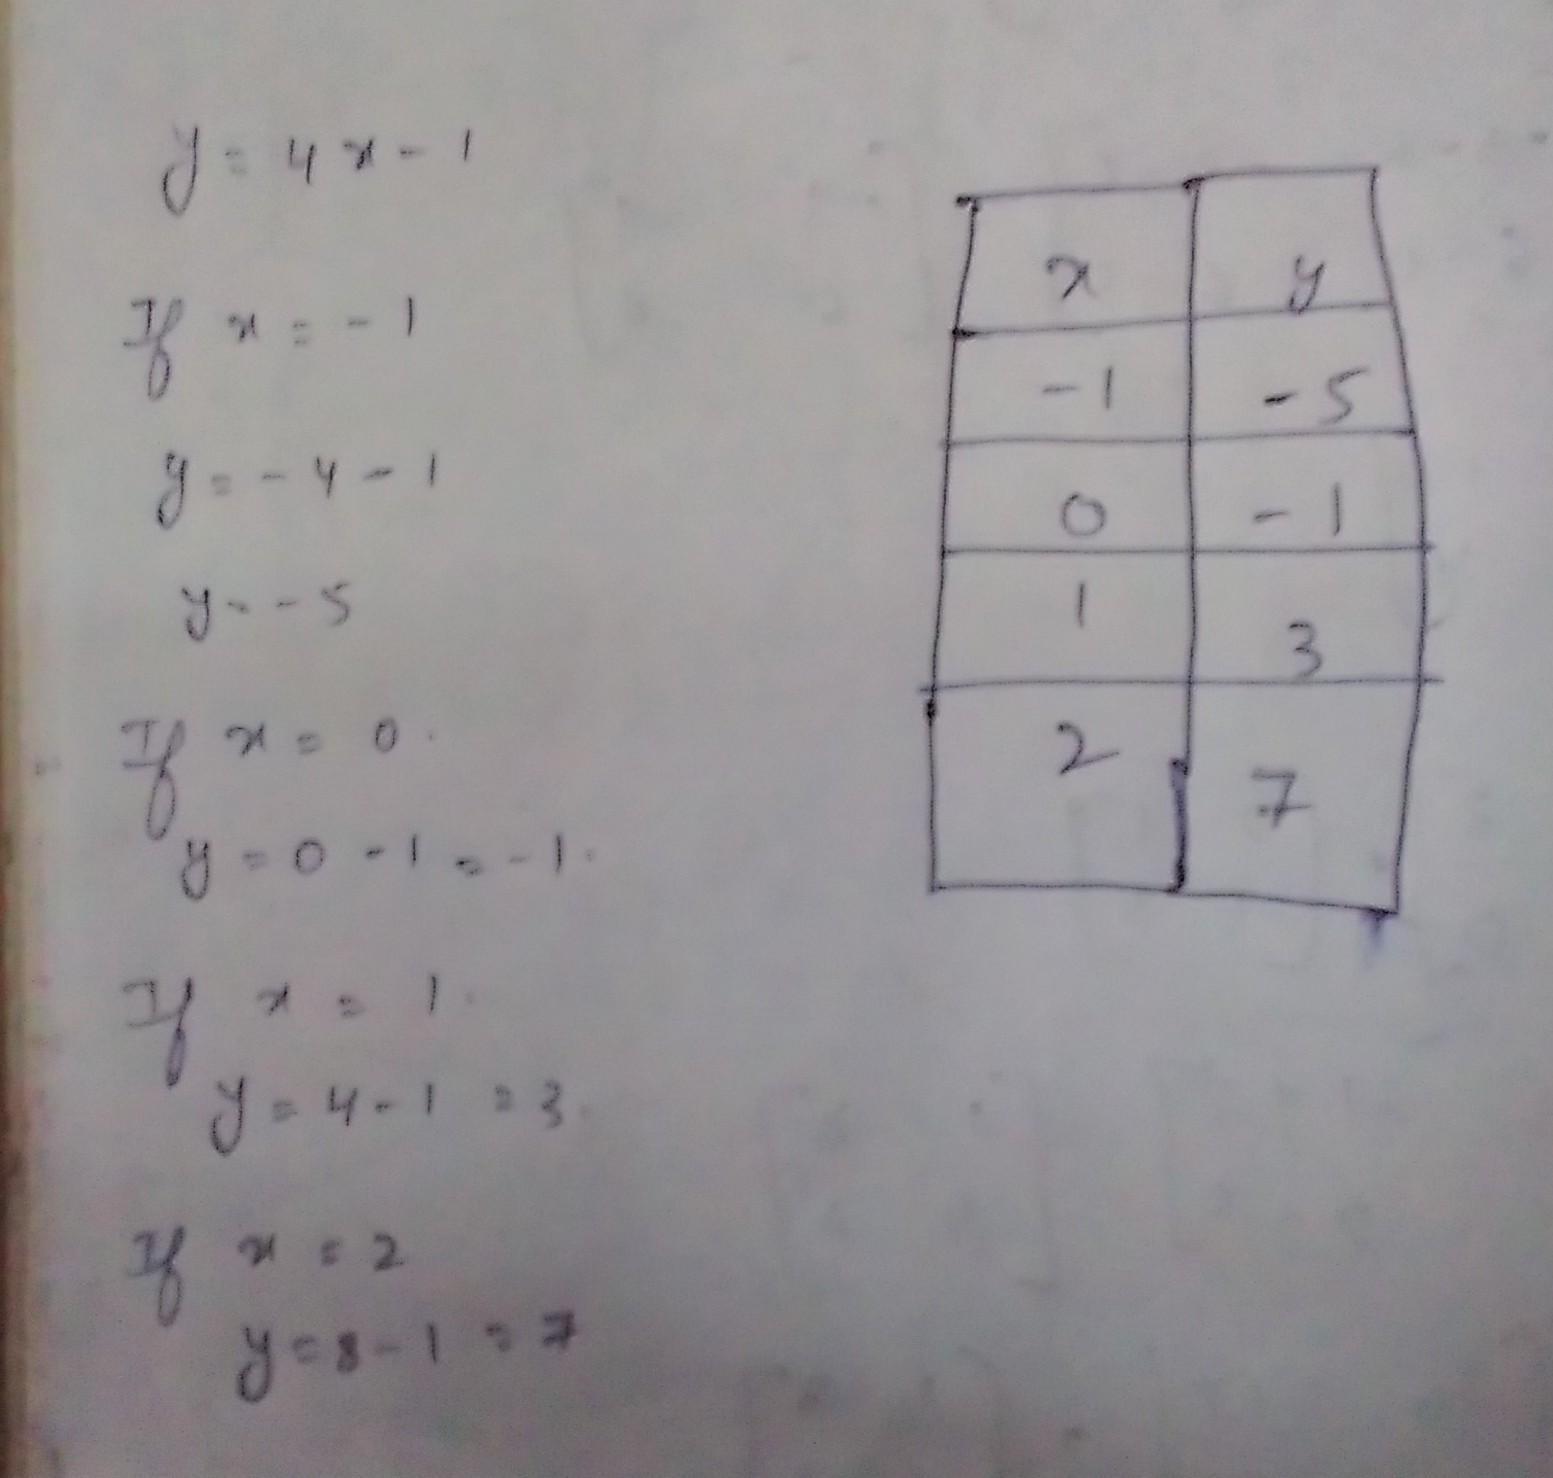 y = 4x - 1
If x = -1
y = -4 - 1
y = -5
If x = 0.
y = 0 - 1 = -1.
If x = 1.
y = 4 - 1 = 3.
If x = 2
y = 8 - 1 = 7
x y
-1 -5
0 -1
1 3
2 7